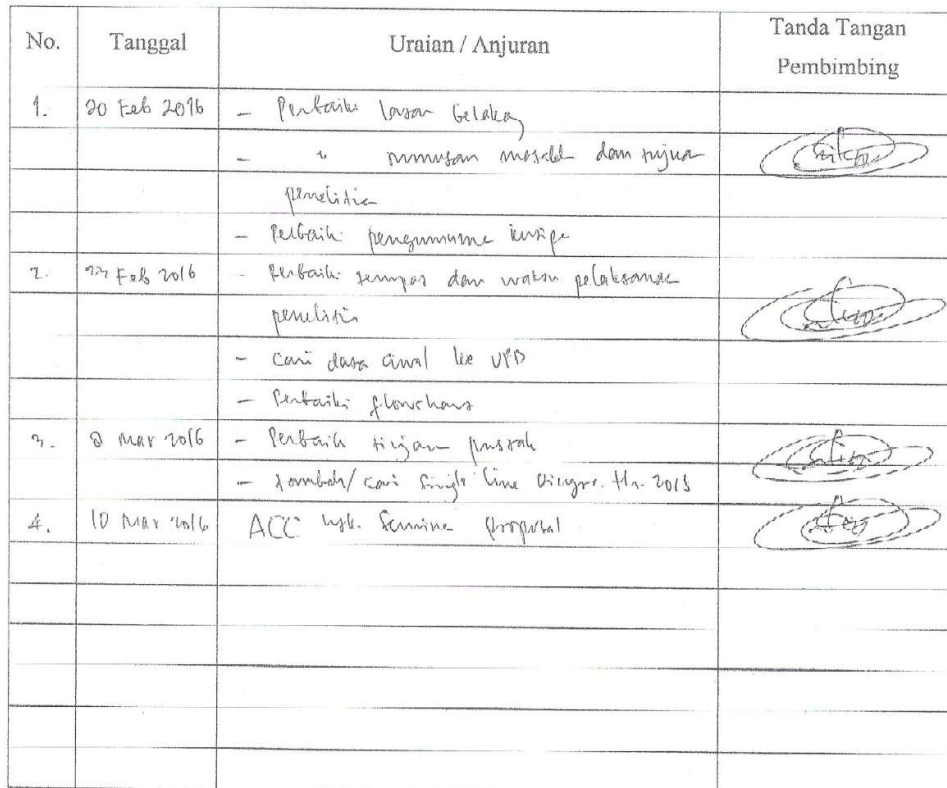 No. Tanggal Uraian / Anjuran Tanda Tangan
Pembimbing
1. 20 Feb 2016 - Perbaiki latar belakang
- " rumusan masalah dan tujuan
penelitian
- Perbaiki pengumuman
2. 22 Feb 2016 - Perbaiki tempat dan waktu pelaksanaan
penelitian
- Cari data awal ke UPB
- Perbaiki flowchart
3. 8 Mar 2016 - Perbaiki tinjauan pustaka
- tambah/ cari Single line Diagram
4. 10 Mar 2016 ACC utk. Seminar Proposal